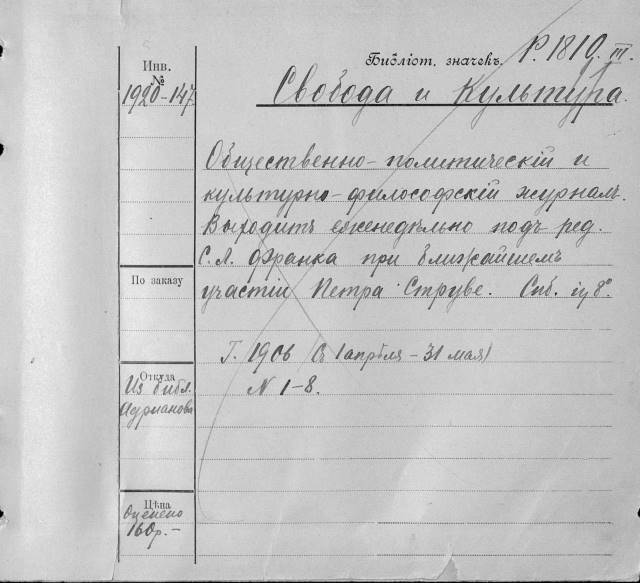 Инв.
№
1920-147
Библіот. значекъ. P. 1819. III.
Свобода и Культура.
Общественно-политическій и
культурно-философскій журналъ.
Выходитъ еженедѣльно подъ ред.
С. Л. Франка при ближайшемъ
участіи Петра Струве. Спб. in 8°
По заказу
Г. 1906 (1 апрѣля - 31 мая)
N 1-8.
Откуда
Из библ.
Адрианова
Цѣна
Оценено
160р.-